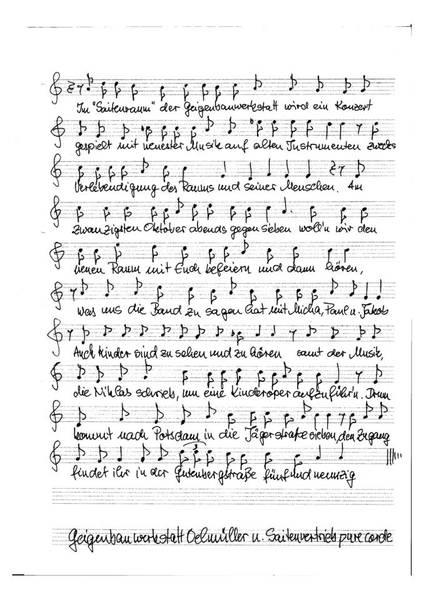 In "Saitenraum" der Geigenbauwerkstatt wird ein Konzert
gespielt mit neuester Musik auf alten Instrumenten zwecks
Verlebendigung des Raums und seiner Menschen. Am
zwanzigsten Oktober abends gegen sieben woll'n wir den
neuen Raum mit Euch befeiern und dann hören,
was uns die Band zu sagen hat mit Micha, Paul u. Jakob
Auch Kinder sind zu sehen und zu hören samt der Musik,
die Niklas schrieb, um eine Kinderoper aufzuführ'n. Drum
kommt nach Potsdam in die Jägerstraße sieben, den Zugang
findet ihr in der Gutenbergstraße fünfundneunzig
Geigenbauwerkstatt Oelmüller u. Saitenvertrieb pure corde